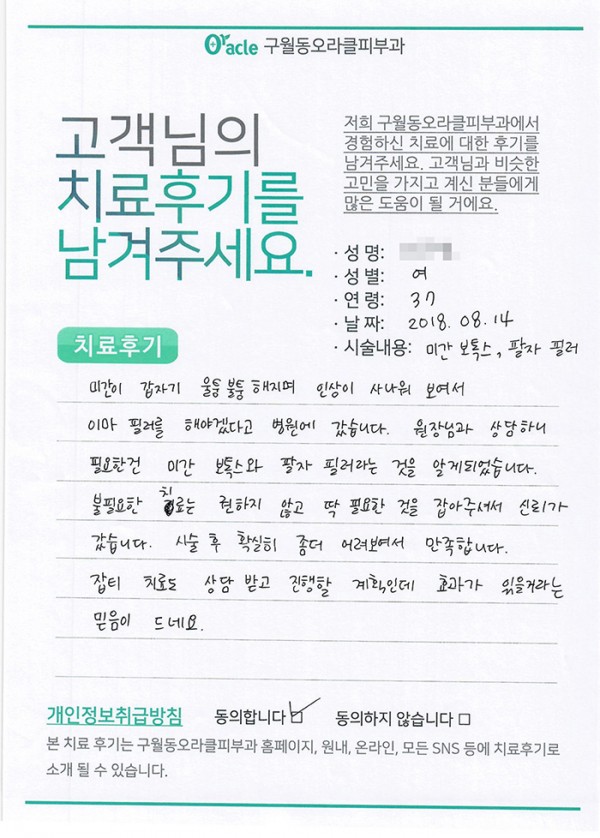 Oracle 구월동오라클피부과
고객님의
치료후기를
남겨주세요.
저희 구월동오라클피부과에서
경험하신 치료에 대한 후기를
남겨주세요. 고객님과 비슷한
고민을 가지고 계신 분들에게
많은 도움이 될 거에요.
· 성 명:
· 성 별: 여
· 연 령: 37
· 날 짜: 2018. 08. 14
· 시술내용: 미간 보톡스, 팔자 필러
치료후기
미간이 갑자기 울퉁불퉁 해지며 인상이 사나워 보여서
이마 필러를 해야겠다고 병원에 갔습니다. 원장님과 상담하니
필요한건 미간 보톡스와 팔자 필러라는 것을 알게되었습니다.
불필요한 치료는 권하지 않고 딱 필요한 것을 잡아주셔서 신뢰가
갔습니다. 시술 후 확실히 좀더 어려보여서 만족합니다.
잡티 치료도 상담 받고 진행할 계획인데 효과가 있을거라는
믿음이 드네요.
개인정보취급방침 동의합니다 동의하지 않습니다
본 치료 후기는 구월동오라클피부과 홈페이지, 원내, 온라인, 모든 SNS 등에 치료후기로
소개 될 수 있습니다.